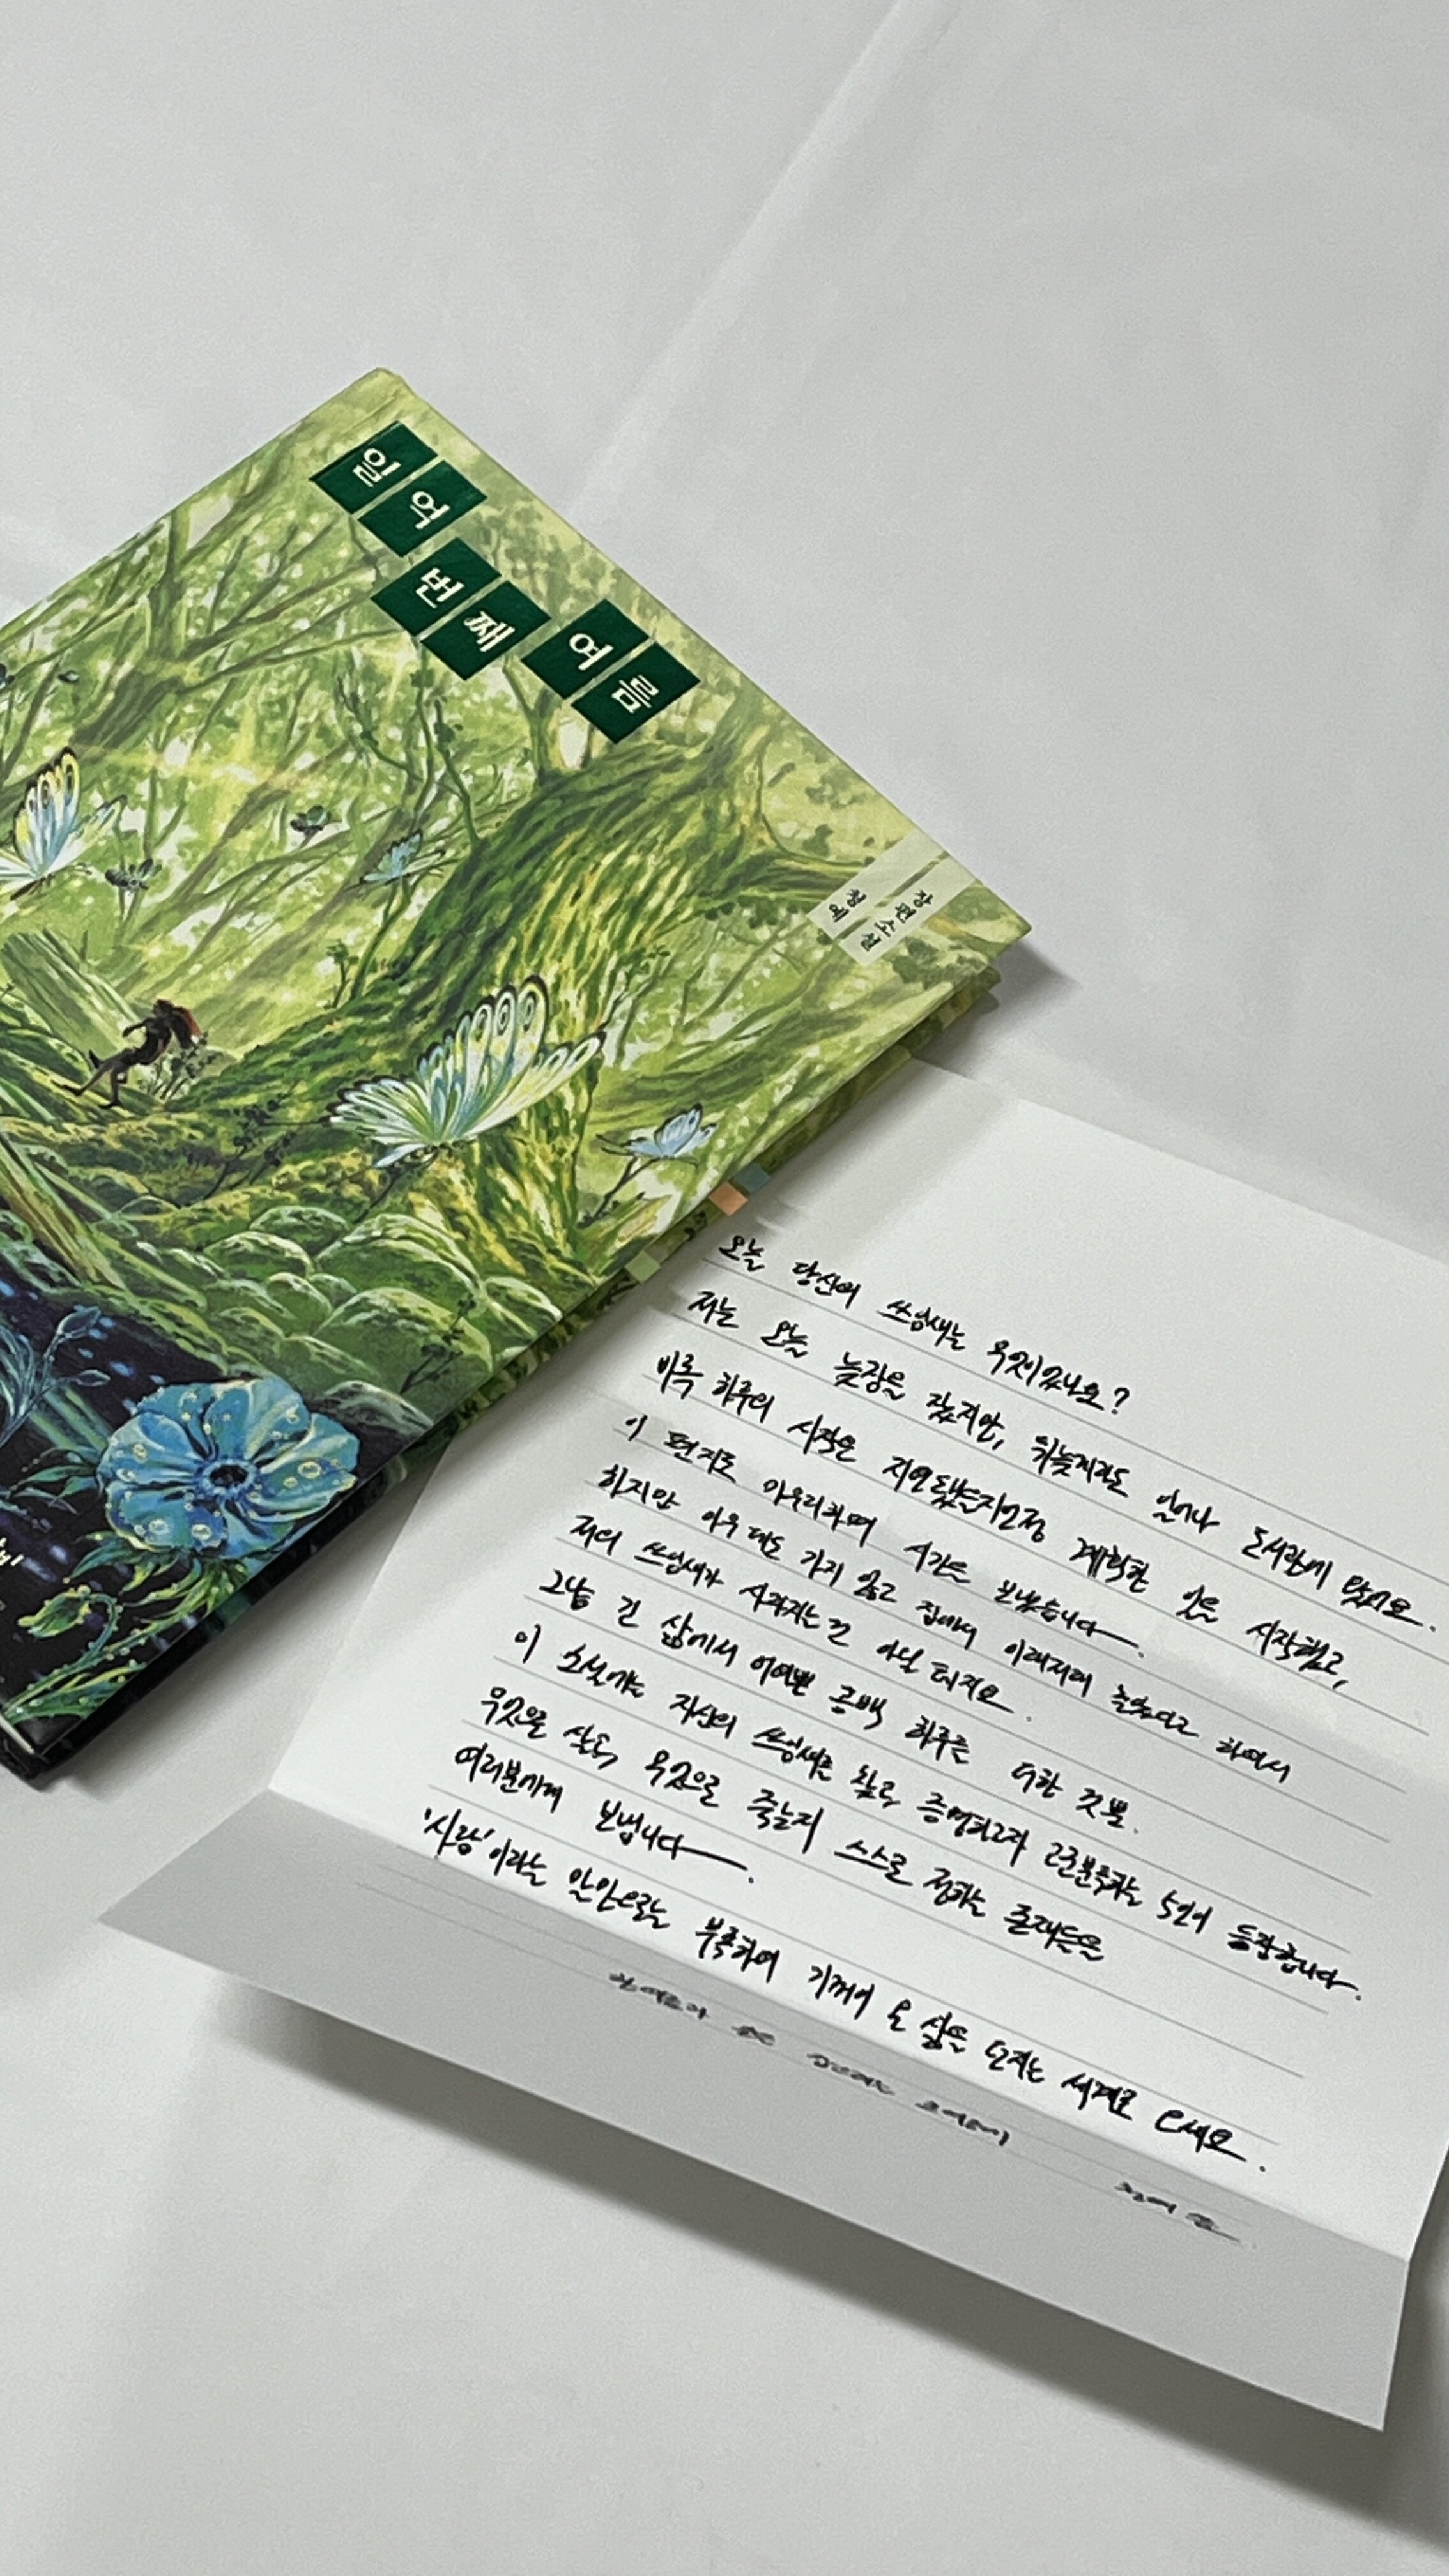 일억
번째 여름
청예
장편소설
오늘 당신의 쓰임새는 무엇이었나요?
저는 오늘 늦장을 잤지만, 뒤늦게라도 일어나 도서관에 왔어요.
비록 하루의 시작은 지연됐을지언정 계획한 일을 시작했고,
이 편지도 마무리하며 시간을 보냈습니다.
하지만 아무 데도 가지 않고 집에서 이래저래 놀았다고 하여서
저의 쓰임새가 사라지는 건 아닐 테지요.
그냥 긴 삶에서 어여쁜 공백 하루를 더한 것뿐.
이 소설에는 자신의 쓰임새를 찾고, 증명하고자 고군분투하는 5인이 등장합니다.
무엇으로 살고, 무엇으로 죽는지 스스로 정하는 존재들을
여러분에게 보냅니다.
'사랑'이라는 말만으로는 부족하여 기꺼이 온 삶을 던지는 세계로 오세요.
청예 씀